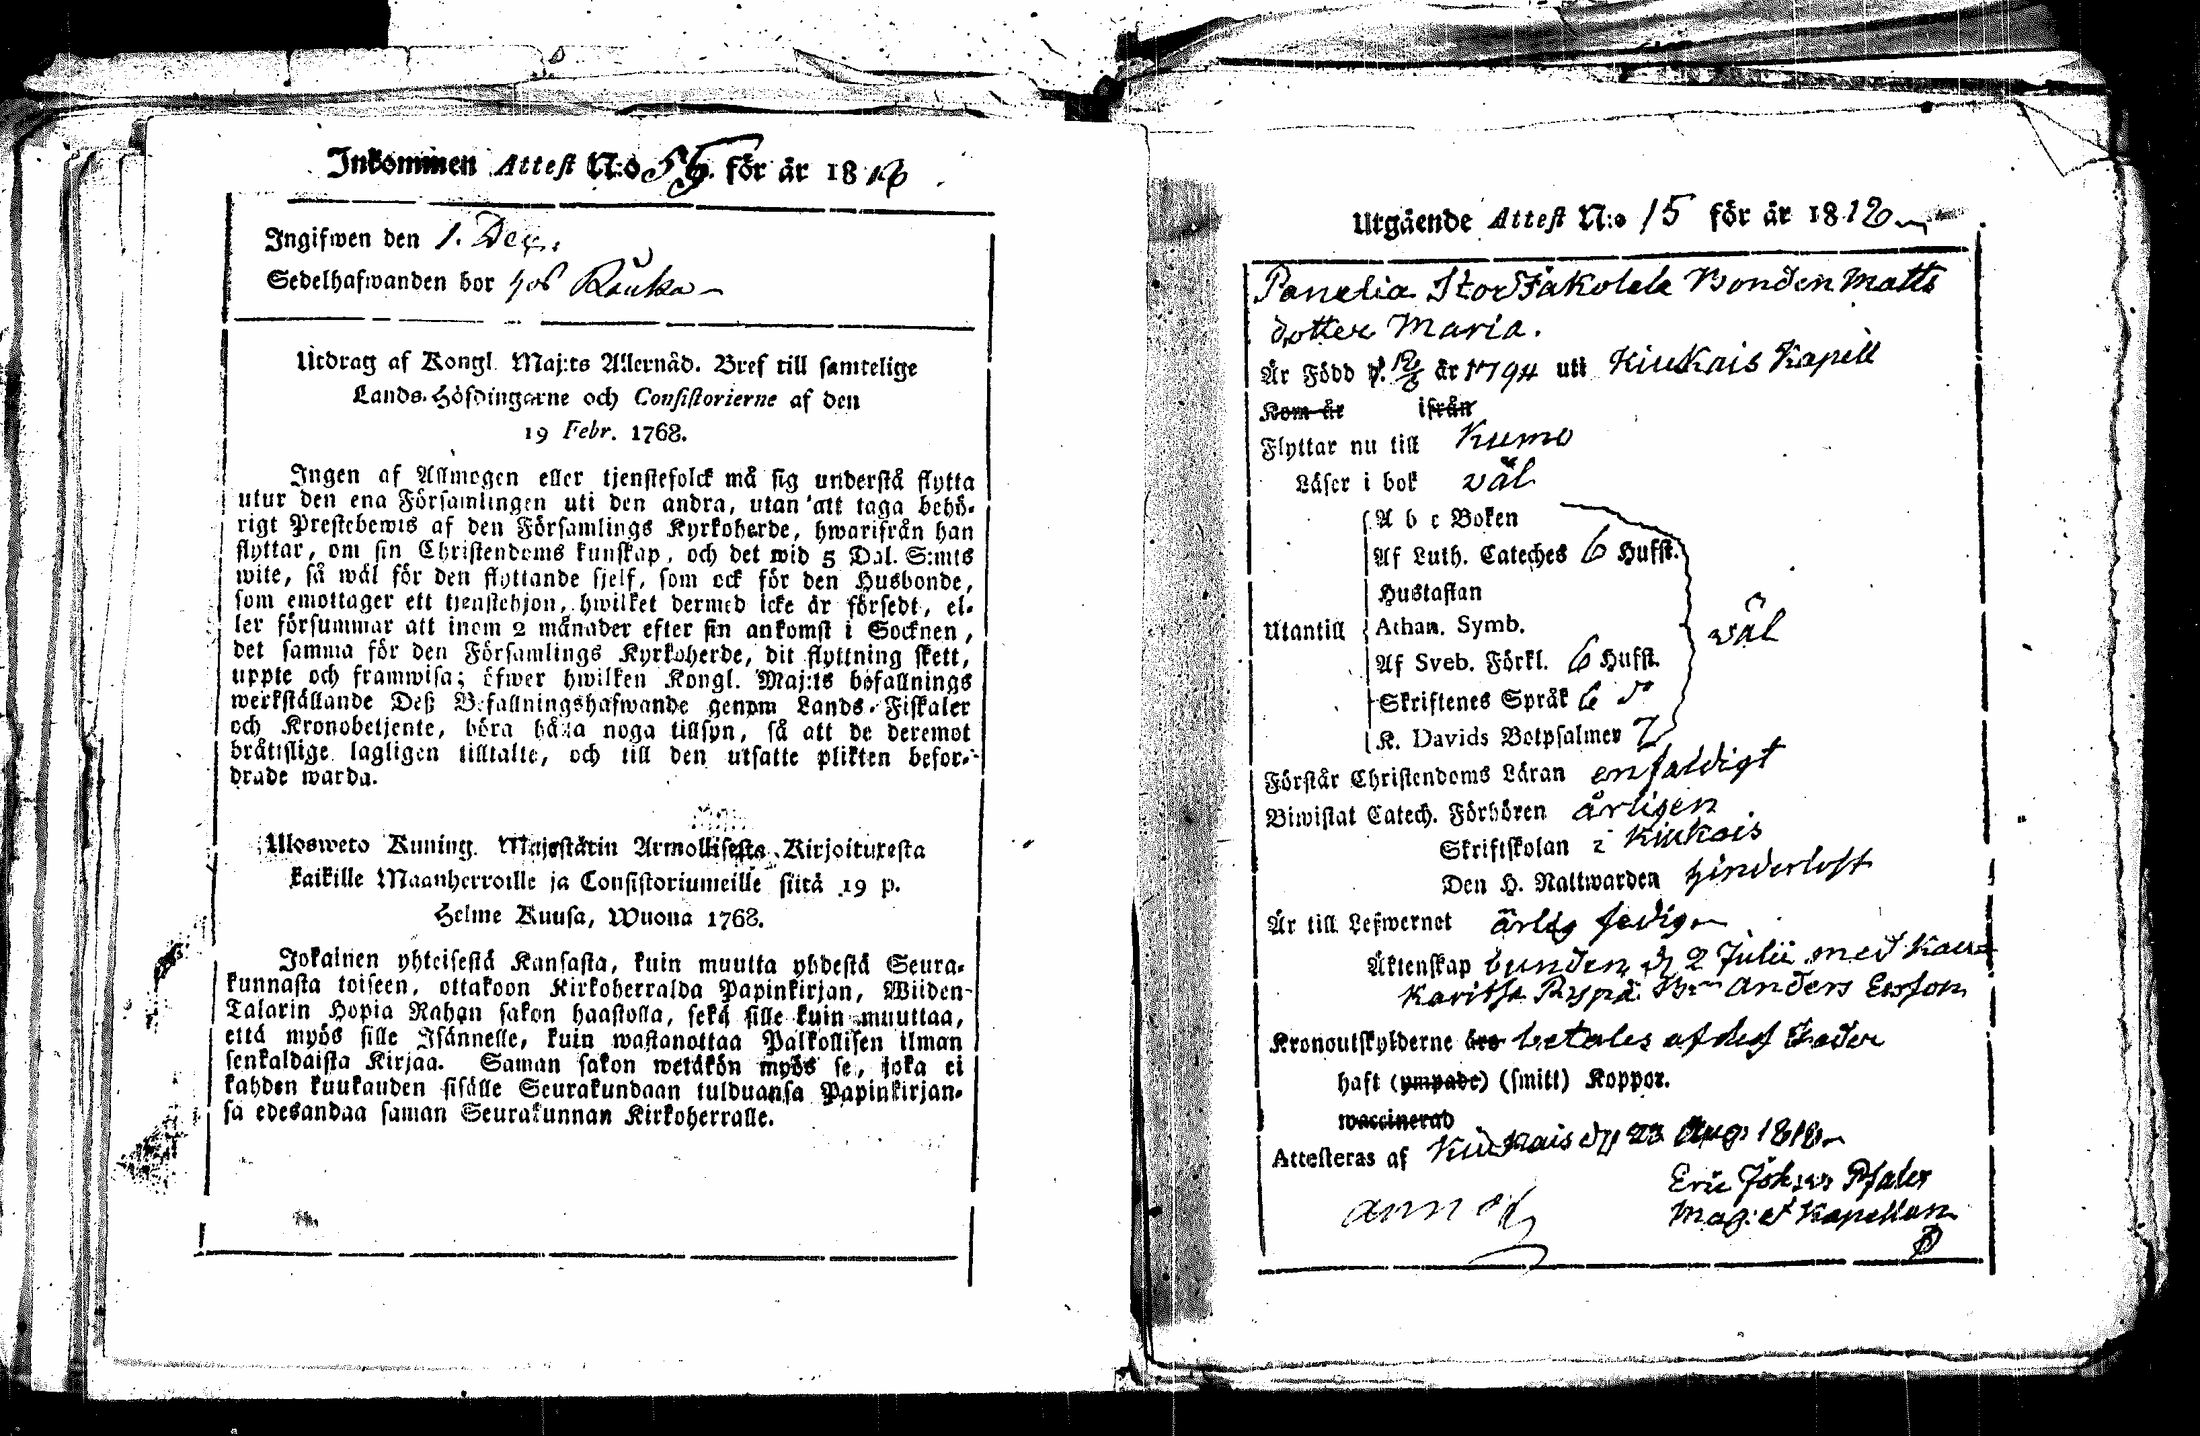 Inkommen Attest N:o 55. för år 18
Ingifwen den 1. Dec.
Sedelhafwanden bor hos Rauka
Utdrag af Kongl. Maj:ts Allernåd. Bref till samtelige
Lands-Höfdingarne och Consistorierne af den
19 Febr. 1768.
Ingen af Allmogen eller tjenstefolck må sig understå flytta
utur den ena Församlingen uti den andra, utan att taga behö-
rigt Prestebewis af den Församlings Kyrkoherde, hwarifrån han
flyttar, om sin Christendoms kunskap, och det wid 5 Dal. S:mts
wite, så wäl för den flyttande sjelf, som ock för den Husbonde,
som emottager ett tjenstehjon, hwilket dermed icke är försedt, el-
ler försummar att inom 2 månader efter sin ankomst i Socknen,
det samma för den Församlings Kyrkoherde, dit flyttning skett,
uppte och framwisa; öfwer hwilken Kongl. Maj:ts befallnings
werkställande Deß Befallningshafwande genom Lands-Fiskaler
och Kronobetjente, böra hålla noga tillsyn, så att de deremot
bråttslige lagligen tilltalte, och till den utsatte plikten befor-
drade warda.
Ulosweto Kuning. Majestätin Armollisesta Kirjoituxesta
kaikille Maanherroille ja Consistoriumeille siitä 19 p.
Helme Kuusa, Wuona 1768.
Jokainen yhteisestä Kansasta, kuin muutta yhdestä Seura-
kunnasta toiseen, ottakoon Kirkoherralda Papinkirjan, Wiiden
Talarin Hopia Rahan sakon haastolla, sekä sille kuin muuttaa,
että myös sille Isännelle, kuin wastanottaa Palkollisen ilman
senkaldaista Kirjaa. Saman sakon wetäkön myös se, joka ei
kahden kuukauden sisälle Seurakundaan tulduansa Papinkirjan-
sa edesandaa saman Seurakunnan Kirkoherralle.
Utgående Attest N:o 15 för år 1818
Panelia StorJäkolelä Bonden Matts
dotter Maria.
Är Född d. år 1794 uti Kiukais Kapell
Kom år ifrån
Flyttar nu till Kumo
Läser i bok wäl
A b c Boken
Af Luth. Cateches 6 Hufst.
Hustaflan
Utantill Athan. Symb. wäl
Af Sveb. Förkl. 6 Hufst.
Skriftenes Språk 6 d:o
K. Davids Botpsalmer 7
Förstår Christendoms Läran enfaldigt
Biwistat Catech. Förhören årligen
Skriftskolan i Kiukais
Den H. Nattwarden hinderlöst
Är till Lefwernet ärlig fredig
Äktenskap bunden d 2 Julii med
Anders Ersson
Kronoutskylderne äro betales af deß Fader
haft (ympade) (smitt) Koppor.
waccinerad
Attesteras af Kiukais d 23 Aug 1818
Eric Johan Pfaler
Mag: et Kapellan